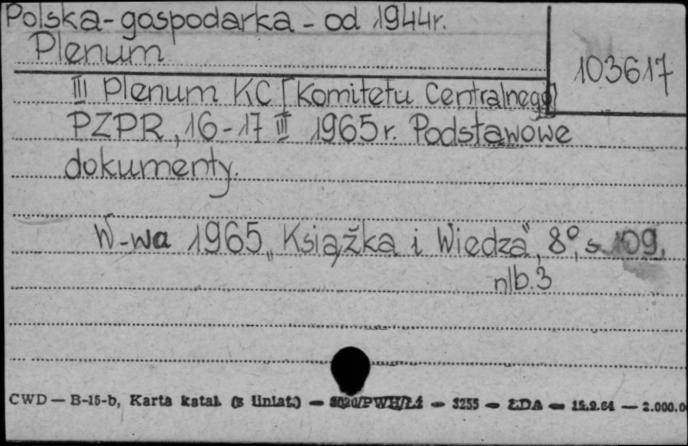 Polska - gospodarka - od 1944r.
Plenum
103617
III Plenum KC [Komitetu Centralnego]
PZPR, 16-17 III 1965 r. Podstawowe
dokumenty.
W-wa 1965 „Książka i Wiedza", 8°, s. 109,
nlb. 3
CWD — B-15-b, Karta katal. (z liniat.) — /PWH/Łi — 3255 — ŁDA — 15.2.64 — 2.000.0